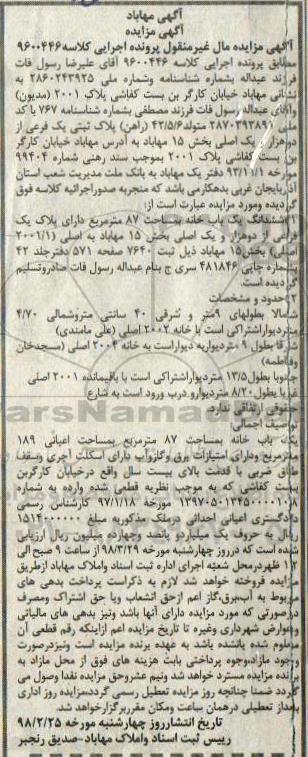 آگهی مهاباد
آگهی مزایده
آگهی مزایده مال غیرمنقول پرونده اجرایی کلاسه ۹۶۰۰۴۴۶
مطابق پرونده اجرایی کلاسه ۹۶۰۰۴۴۶ آقای علیرضا رسول فات
فرزند عبداله بشماره شناسنامه وشماره ملی ۲۸۶۰۲۴۳۹۲۵
نشانی مهاباد خیابان کارگر بن بست کفاشی پلاک ۲۰۰۱ (مدیون)
وآقای عبداله رسول فات فرزند مصطفی بشماره شناسنامه ۷۶۷ با کد
ملی ۲۸۷۰۳۹۳۸۹۱ متولد۴۳/۵/۶ (راهن) پلاک ثبتی یک فرعی از
دوهزار و یک اصلی بخش ۱۵ مهاباد به آدرس مهاباد خیابان کارگر
بن بست کفاشی پلاک ۲۰۰۱ بموجب سند رهنی شماره ۹۹۴۰۴
مورخه ۹۳/۱۱/۱ دفتر یک مهاباد به بانک ملت مدیریت شعب استان
آذربایجان غربی بدهکارمی باشد که منجربه صدوراجرائیه کلاسه فوق
گردیده ومورد مزایده عبارت است از:
۱)ششدانگ یک باب خانه بمساحت ۸۷ مترمربع دارای پلاک یک
فرعی از دوهزار و یک اصلی بخش ۱۵ مهاباد به اصلی (۲۰۰۱/۱
اصلی) بخش۱۵ مهاباد ذیل ثبت ۷۶۴۰ صفحه ۵۷۱ دفترجلد ۴۲
بشماره چاپی ۴۸۱۸۴۶ سری ج بنام عبداله رسول فات صادروتسلیم
گردیده است.
۲)حدود و مشخصات
شمالا بطولهای ۹متر و شرقی ۴۰ سانتی متروشمالی ۴/۷۰
متردیواراشتراکی است با خانه ۲۰۰۲ اصلی (علی مامندی)
شرقا بطول ۹ متردیواربه دیواراست به خانه ۲۰۰۴ اصلی (مسجدخان
وفاطمه)
جنوبا بطول۱۳/۵ متردیواراشتراکی است با باقیمانده ۲۰۰۱ اصلی
غربا بطول ۸/۲۰ متردیوارو درب ورود است به شارع
حقوقی ارتفاقی ندارد.
توصیف اجمالی:
یک باب خانه بمساحت ۸۷ مترمربع بمساحت اعیانی ۱۸۹
مترمربع ودارای امتیازات برق وگازوآب دارای اسکلت آجری وسقف
طاق ضربی با قدمت بالای بیست سال واقع درخیابان کارگربن
بست کفاشی که به موجب نظریه قطعی شده وارده به شماره
مورخه ۹۷/۱/۱۸ کارشناس رسمی
دادگستری اعیانی احداثی درملک مذکوربه مبلغ ۱۵۱۴۰۰۰۰۰۰
ریال به حروف یک میلیاردو پانصد وچهارده میلیون ریال ارزیابی
شده است که درروز چهارشنبه مورخه ۹۸/۳/۲۹ از ساعت ۹ صبح الی
۱۲ ظهردرمحل شعبه اجرای اداره ثبت اسناد واملاک مهاباد ازطریق
مزایده فروخته خواهد شد لازم به ذکراست پرداخت بدهی های
مربوط به آب،برق،گاز اعم ازحق انشعاب ویا حق اشتراک ومصرف
درصورتی که مورد مزایده دارای آنها باشد ونیز بدهی های مالیاتی
وعوارض شهرداری وغیره تا تاریخ مزایده اعم ازاینکه رقم قطعی آن
معلوم شده یانشده باشد به عهده برنده مزایده است ونیزدرصورت
وجود مازاد،وجوه پرداختی بابت هزینه های فوق از محل مازاد به
برنده مزایده مسترد خواهد شد ونیم عشروحق مزایده نقدا وصول می
گردد ضمنا چنانچه روز مزایده تعطیل رسمی گردد،مزایده روز اداری
بعداز تعطیلی درهمان ساعت ومکان مقرربرگزارخواهد شد.
تاریخ انتشارروز چهارشنبه مورخه ۹۸/۲/۲۵
رییس ثبت اسناد واملاک مهاباد-صدیق رنجبر